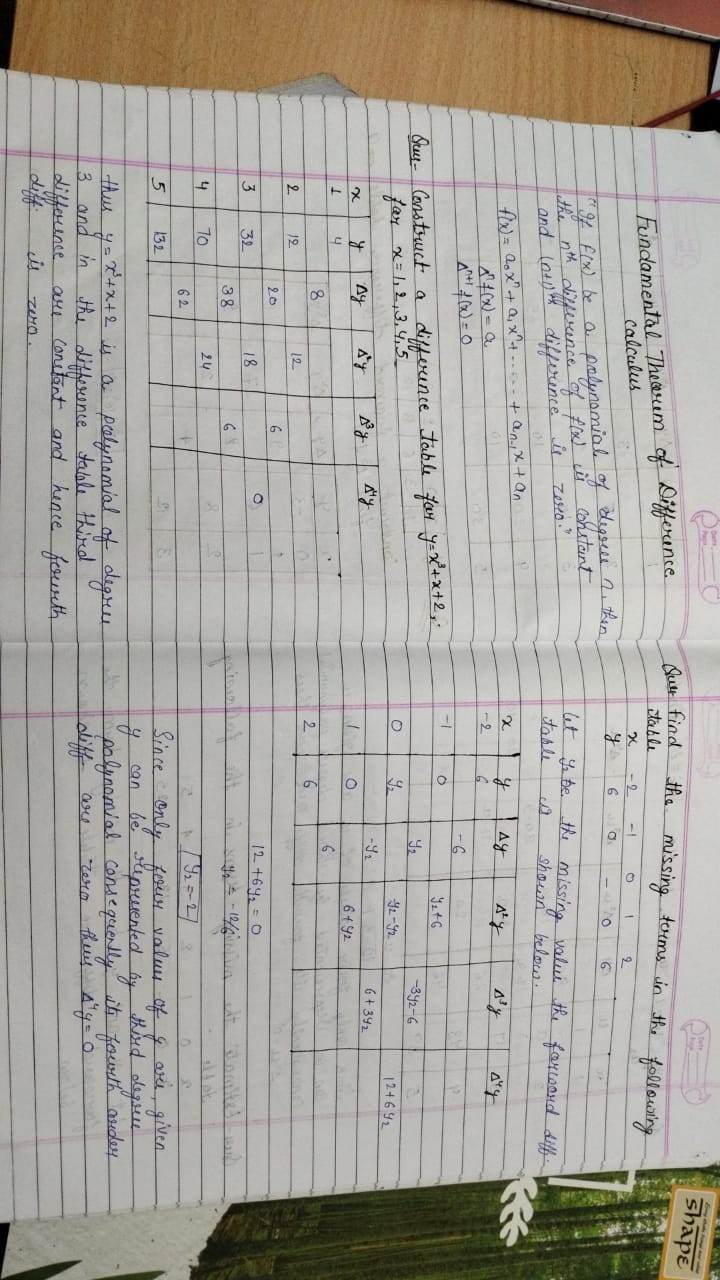 Fundamental Theorem of Difference
calculus
"If f(x) be a polynomial of degree n, then
the nth difference of f(x) is constant
and (n+1)th difference is zero."
f(x) = a₀xⁿ + a₁xⁿ + ..... + aₙ₋₁ x + aₙ
Δⁿ f(x) = a
Δⁿ⁺¹ f(x) = 0
Que- Construct a difference table for y=x³+x+2;
for x=1,2,3,4,5
x y Δy Δ²y Δ³y Δ⁴y
1 4
8
2 12 12
20 6
3 32 18 0
38 6
4 70 24
62
5 132
thus y=x³+x+2 is a polynomial of degree
3 and in the difference table third
difference are constant and hence fourth
diff. is zero.
Que find the missing terms in the following
table
x -2 -1 0 1 2
y 6 0 - 0 6
let y₂ be the missing value the forward diff.
table is shown below.
x y Δy Δ²y Δ³y Δ⁴y
-2 6
-6
-1 0 y₂+6
y₂ -3y₂-6
0 y₂ y₂-y₂ 12+6y₂
-y₂ 6+3y₂
1 0 6+y₂
6
2 6
12+6y₂ = 0
y₂ = -12/6
y₂ = -2
Since only four values of y are, given
y can be represented by third degree
polynomial consequently its fourth order
diff are zero thus Δ⁴y = 0
shape